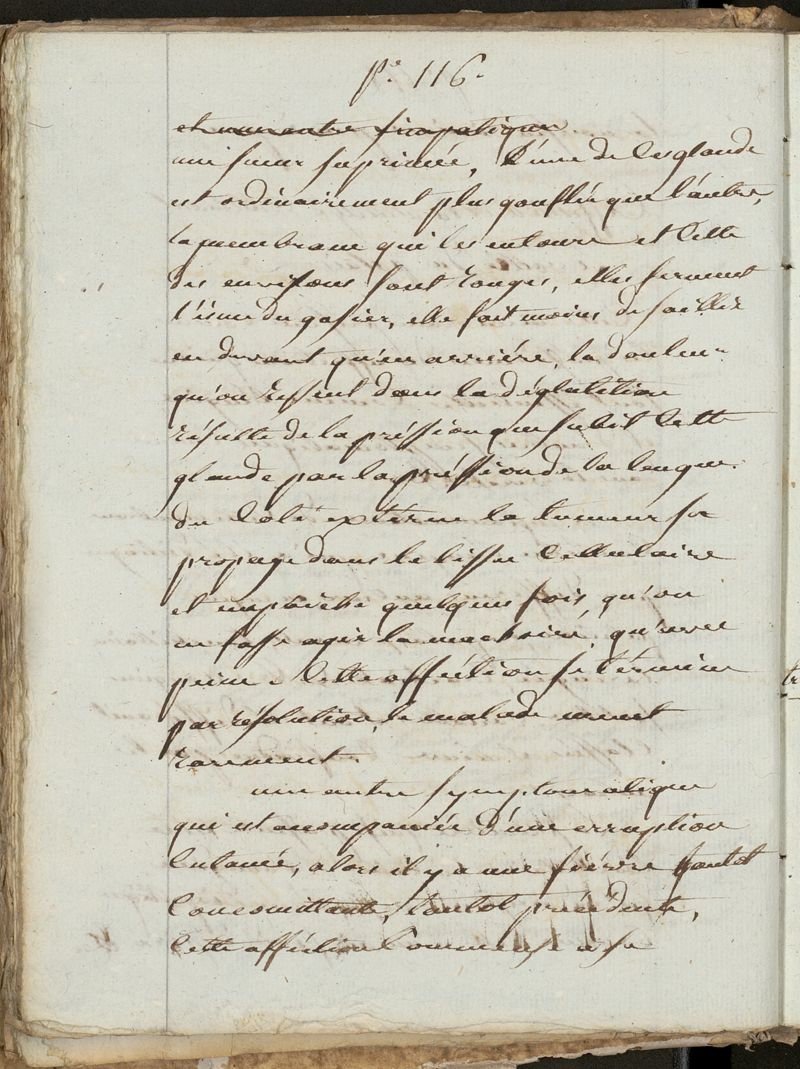 p.e 116.
et une autre simpatique
une sueur suprimée, l'une de ces glande
est ordinairement plus gonflée que l'autre,
la membrane qui les entoure et celle
des environs sont rouges, elles ferment
l'isme du gosier, elle fait moins de saillie
en devant qu'en arriére, la douleur
qu'on ressent dans la déglutition
résulte de la préssion que subit cette
glande par la préssion de la langue.
du coté externe la tumeur se
propage dans le tissu cellulaire
et empêche quelques fois, qu'on
en fasse agir la machoire, qu'avec
peine. Cette afféction se termine
par résolution, le malade meurt
rarement.
une autre symptomatique
qui est accompaniée d'une erruption
cutanée, alors il y a une fiévre tantot
concomittante, tantot précédente,
cette afféction commense a se